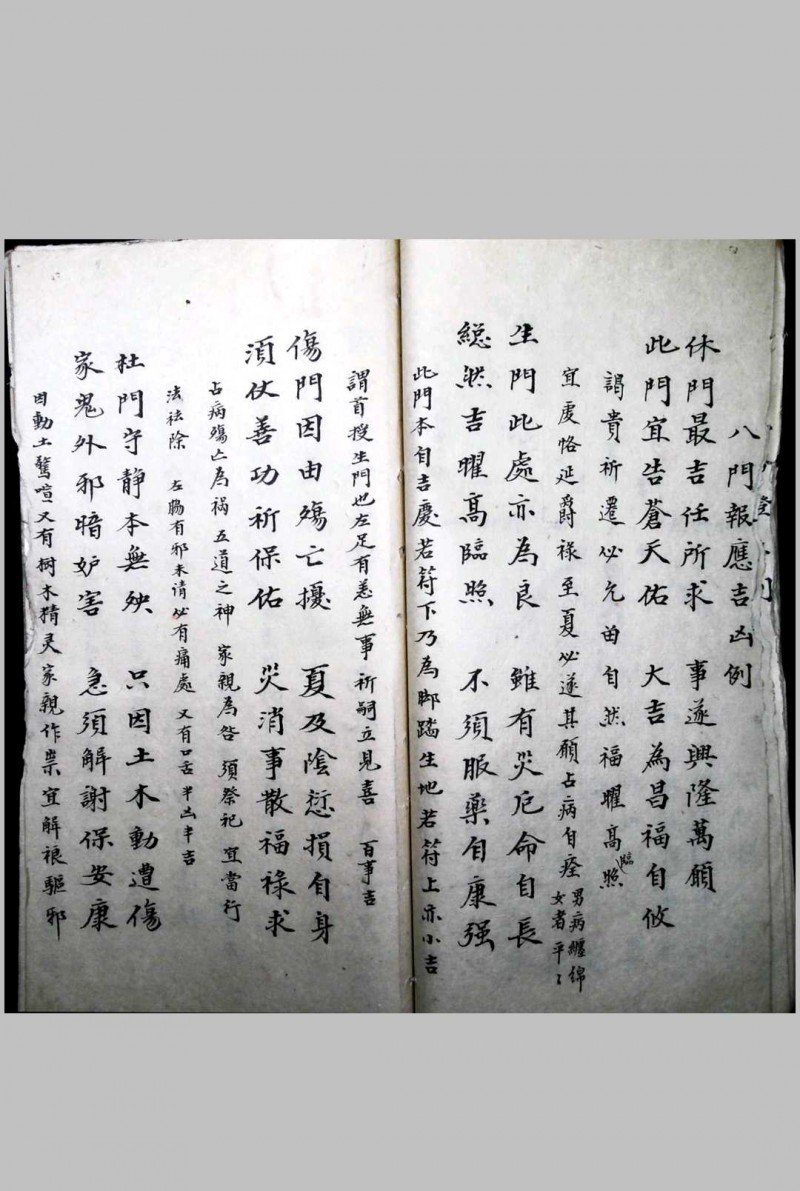 八門報應吉凶例
休門最吉任所求 事遂興隆萬願
此門宜告蒼天佑 大吉為昌福自攸
謁貴祈遷必允 自然福曜高臨照
宜虔恪延爵祿至夏必遂其願占病自痊 男病纏綿
女者平々
生門此處亦為良 雖有災厄命自長
縂然吉曜高臨照 不須服藥自康强
此門本自吉慶若符下乃為脚踏生地若符上亦小吉
謂首授生門也左足有恙無事祈嗣立見喜 百事吉
傷門因由殤亡擾 夏及陰愆損自身
須仗善功祈保佑 災消事散福祿求
占病殤亡為祸五道之神 家親為咎 須祭祀 宜當行
法祛除 左腸有邪未清必有痛處 又有口舌半凶半吉
杜門守静本無殃 只因土木動遭傷
家鬼外邪暗妒害 急須解謝保安康
因動土驚喧又有树木精灵家親作祟宜解禳驅邪